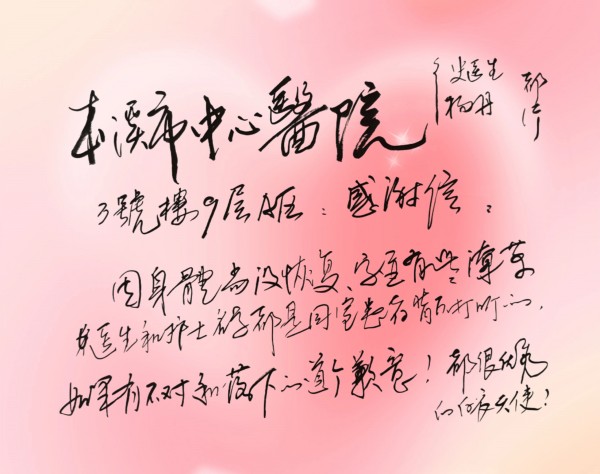 史医生
杨丹
本溪市中心醫院
3號樓9层A区：感谢信：
因身體尚没恢复、字里有些潦草
史医生和护士名字都是同室患者背后打听的,
如果有不对和落下的道个歉意！都很优秀
的白衣天使！